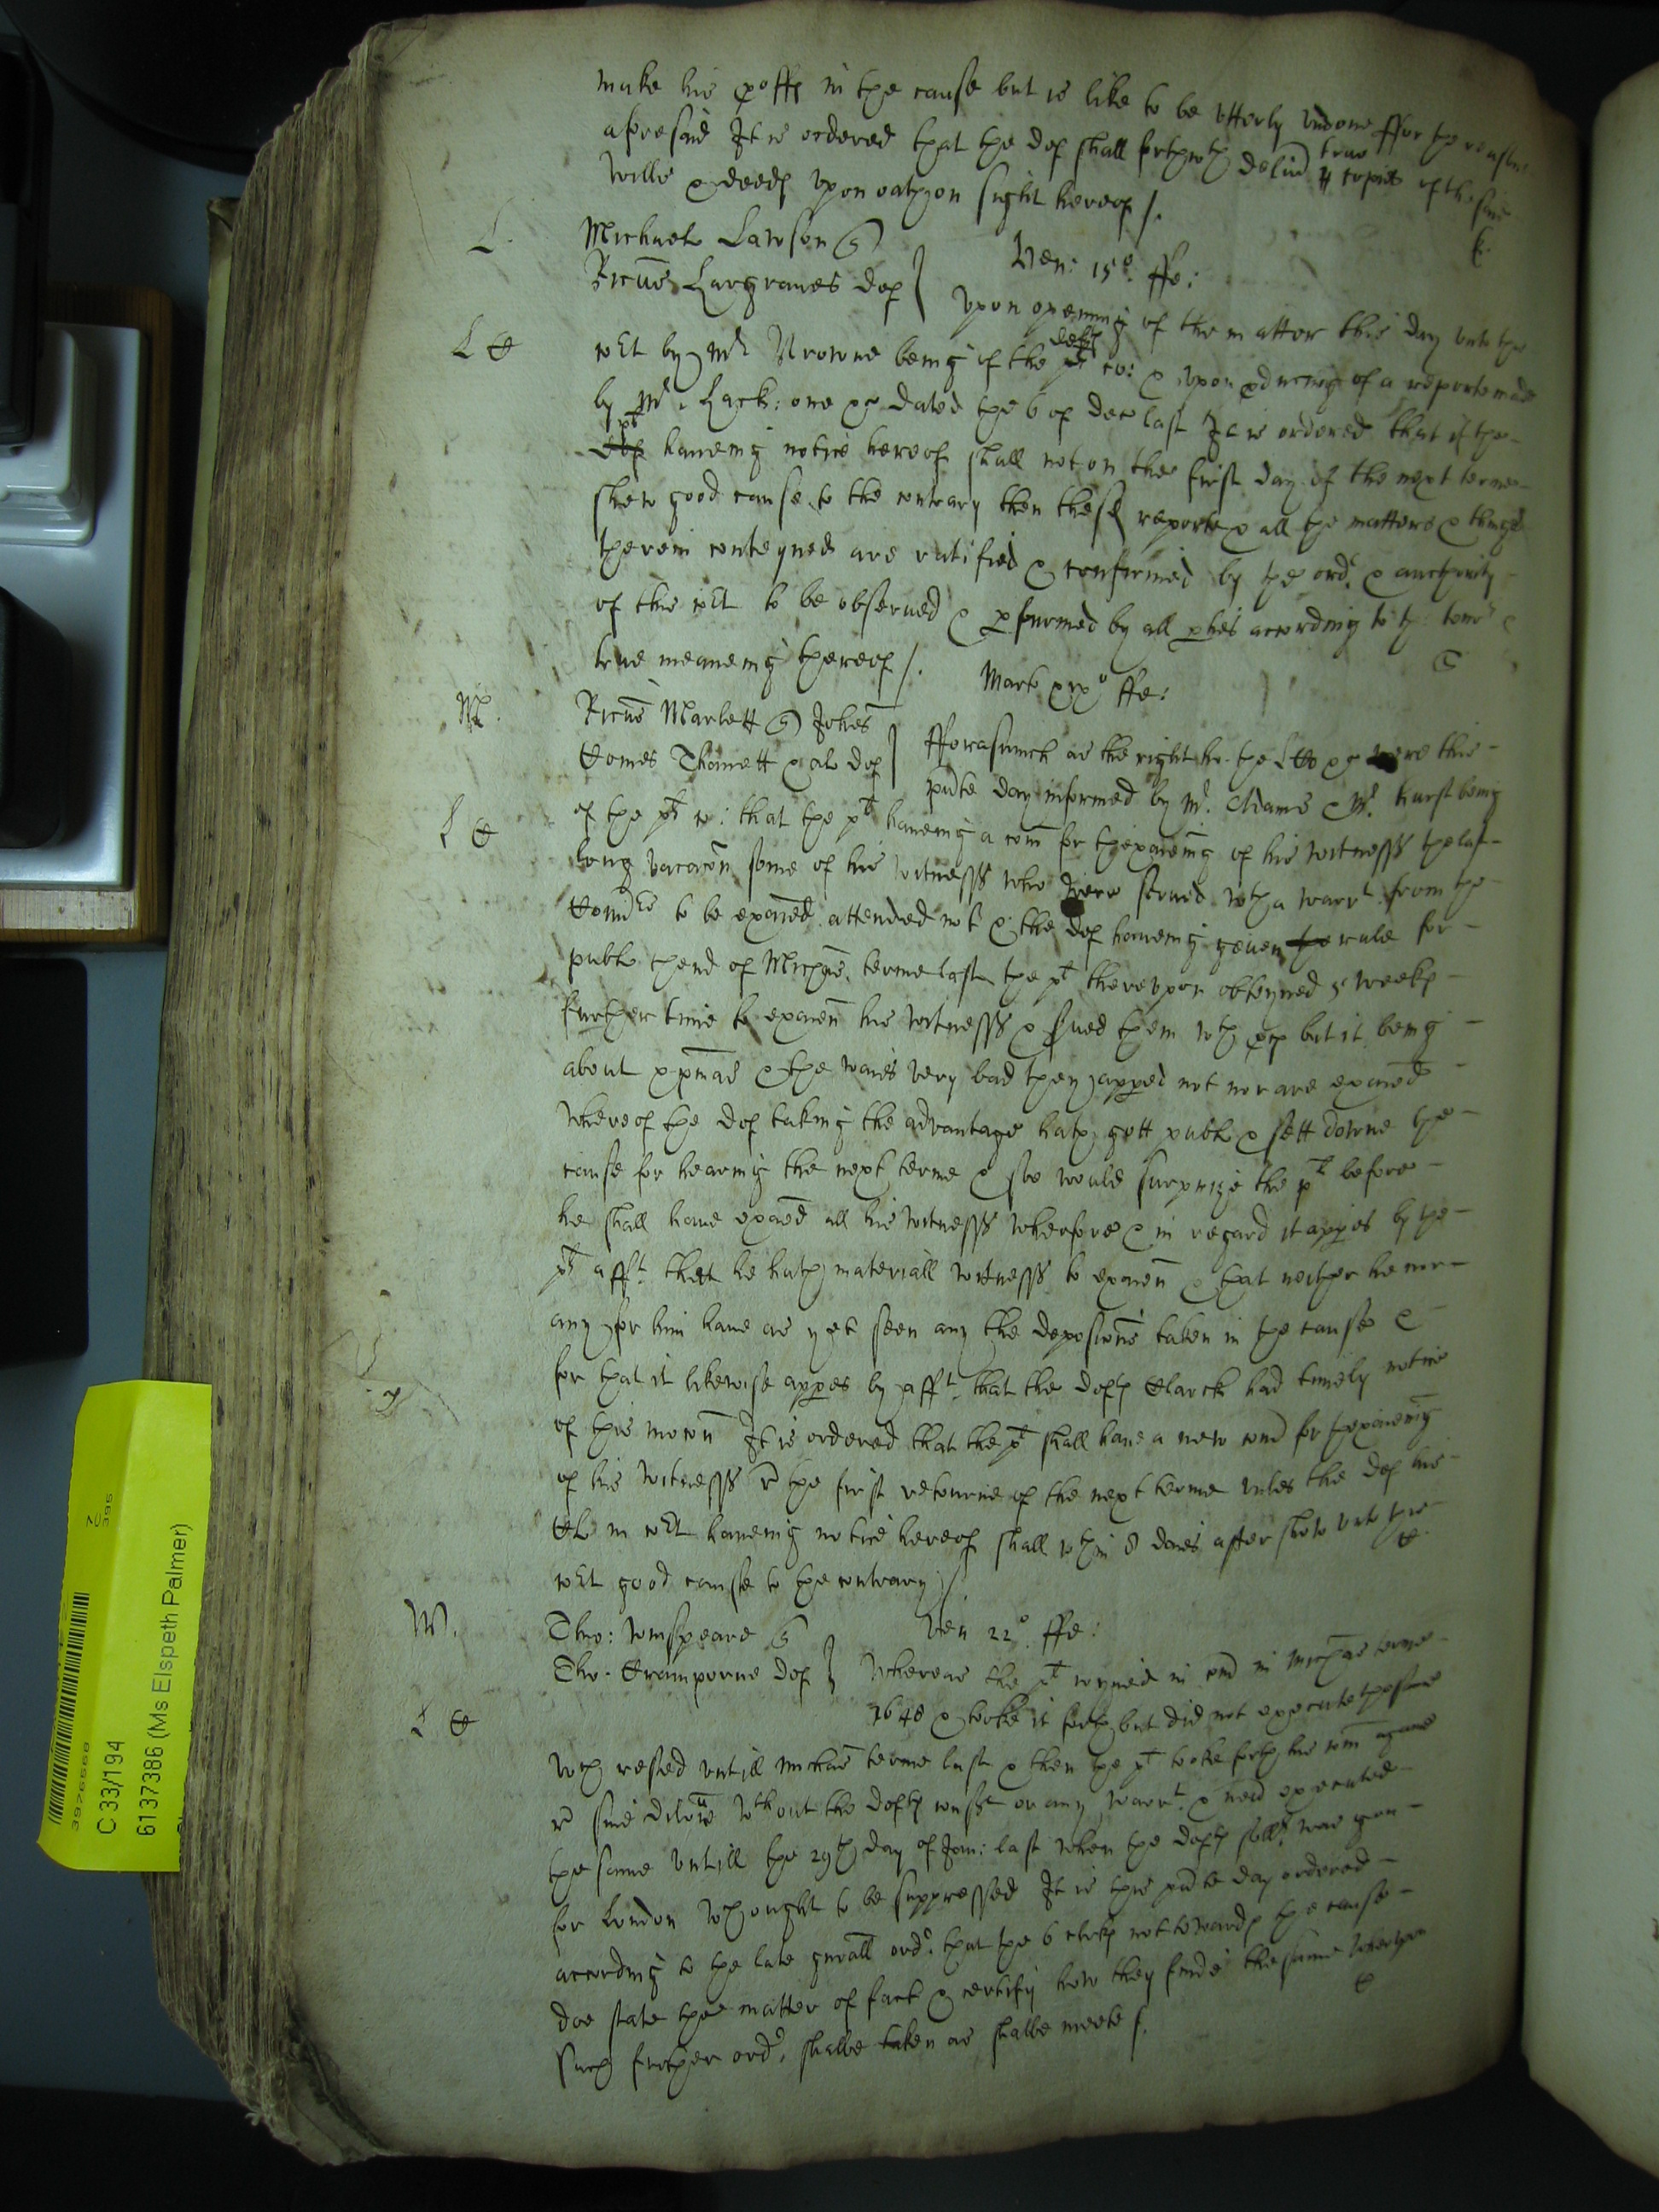 make his proffs in the cause but is like to be utterly undone ffor the reasons
aforesaid It is ordered that the def shall forthwth deliv true copies of the said
wills & deeds upon oath on sight hereof /.
L. Michael Lawson
Ven: 15o. ffe:
Ricus Hargraves def } Upon opening of the matter this day unto this
LC
cort by Mr Browne being of the defts co: & upon produceing of a reporte made
by Mr. Hach: one &c dated the 6 of Dec last It is ordered that if the
plt haveing notice hereof shall not on the first day of the next terme
shew good cause to the contrary then these reporte & all the matters & things
therein conteyned are ratified & confirmed by the ordr. & authority
of this cort to be observed & pformed by all pties according to the tenor &
true meaneing thereof /.
Mart xixo ffe:
M. Ricus Marlett Johes
Comes Thanett & al def } fforasmuch as the right ho. the LCo &c were this
psnte day informed by Mr. Adams & Mr. Hurst being
LC
of the plts co: that the plt haveing a com for thexaieing of his witnesses the last
long vacacon some of his witnesses who were served wth a warrt from the
Comrs to be exaied attended not & the def haveing geven rule for
publ thend of Michas. terme last the plt thereupon obteyned 5 weeks
further time to exaien his witnesses & served them wth &c but it being
about xpmas & the waies very bad they appeed not nor are exaied
whereof the def taking the advantage hath gott publ & sett downe the
cause for hearing the next terme & soe would surprize the plt before
he shall have exaied all his witnesses wherefore & in regard it appes by the
plts afft. that he hath materiall witnesses to exaien & that neither he nor
any for him have as yet seen any the deposicons taken in the cause &
for that it likewise appes by afft. that the defts Clarck had timely notice
of this mocon It is ordered that the plt shall have a new com for thexaieing
of his witnesses r the first retourne of the next terme unles the def his
Cl in cort haveing notice hereof shall wthin 8 daies after shew unto this
cort good cause to the contrary /.
W. Tho: Winspeare
Ven 22o. ffe:
Tho. Cramporne def } Whereas the plt joyned in com in Michas terme
1648 & tooke it forth but did not execute the same
LC
wch rested untill Michas terme last & then the plt tooke forth his com againe
r sine dilone wthout the defts consent or any warrt. & never executed
the same untill the 29th day of Jan: last when the defts sollr. was gone
for London wch ought to be suppressed It is this psnte day ordered
according to the late genrall ordr. that the 6 clrks not towards the cause
doe state the matter of fact & certify how they finde the same whereupon
such further ordr. shalbe taken as shalbe meete /.
C 33/194
6137386 (Ms Elspeth Palmer)